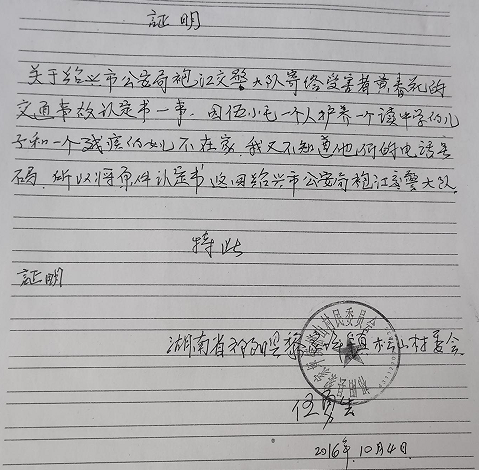 証明
关于绍兴市公安局袍江交警大队寄给受害者黄春花的
交通事故认定书一事.因伍小毛一个人护养一个读中学的儿
子和一个残疾的女儿不在家.我又不知道他们的电话号
码.所以将原件认定书返回绍兴市公安局袍江交警大队.
特此
証明
湖南省祁阳县 镇松山村委会
松山村民委员会
伍勇生
2016年.10月4日